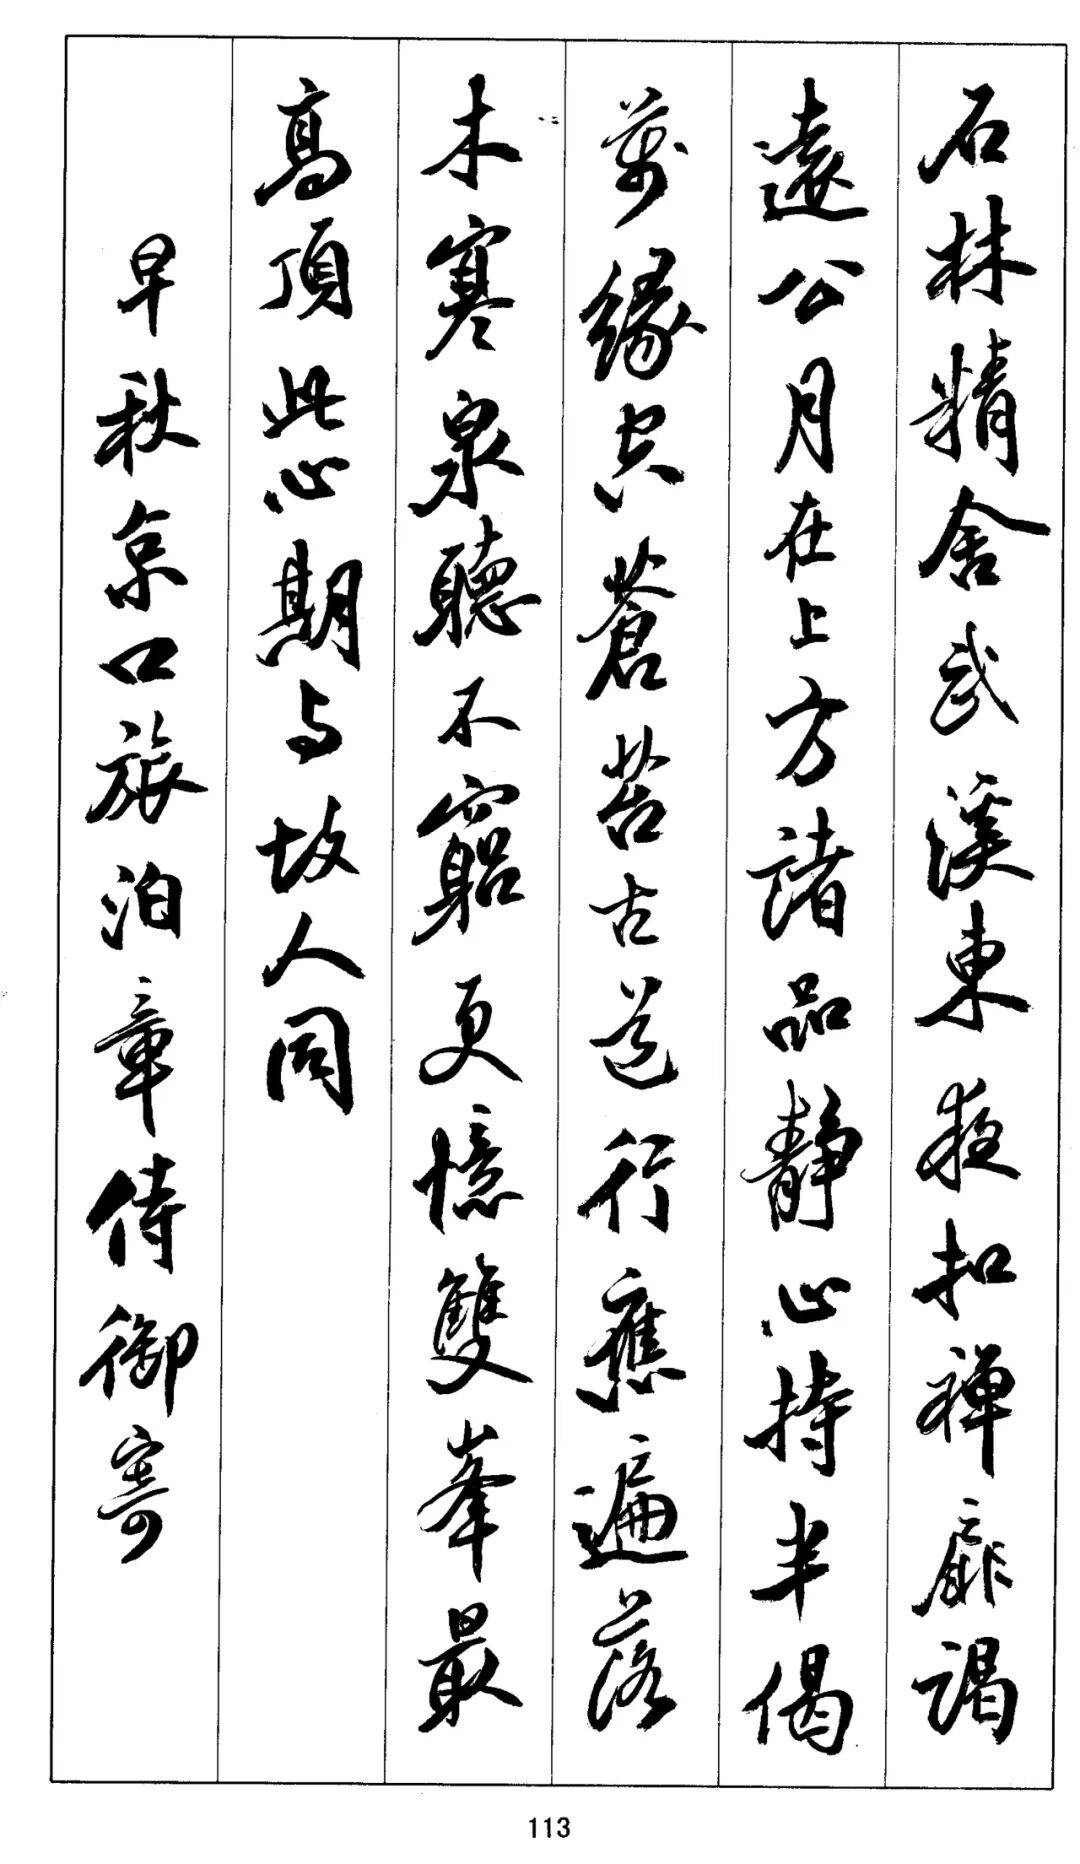 石林精舍武溪東夜扣禅扉謁
遠公月在上方諸品静心持半偈
萬緣空蒼苔古道行應遍落
木寒泉聽不窮更憶雙峯最
高頂此心期与故人同
早秋京口旅泊章侍御寄
113